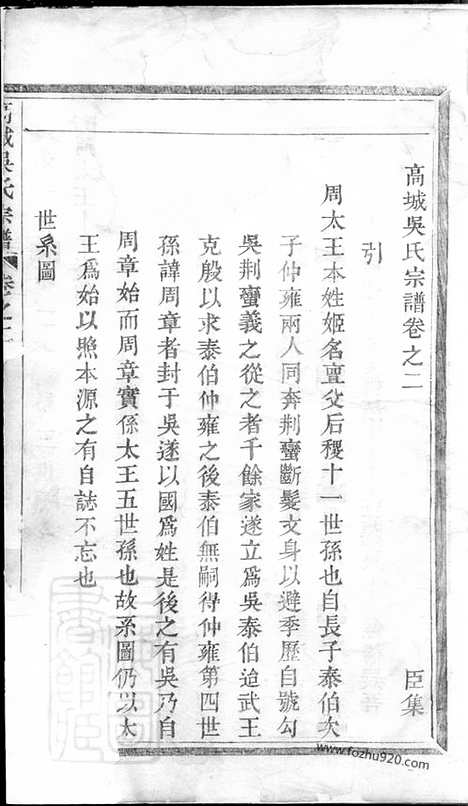 高城吳氏宗譜卷之二
臣集
引
周太王本姓姬名亶父后稷十一世孫也自長子泰伯次
子仲雍兩人同奔荆蠻斷髮文身以避季歷自號勾
吳荆蠻義之從之者千餘家遂立爲吳泰伯迨武王
克殷以求泰伯仲雍之後泰伯無嗣得仲雍第四世
孫諱周章者封于吳遂以國爲姓是後之有吳乃自
周章始而周章實係太王五世孫也故系圖仍以太
王爲始以照本源之有自誌不忘也
世系圖
高城吳氏宗譜
卷之二
www.fozhu920.com